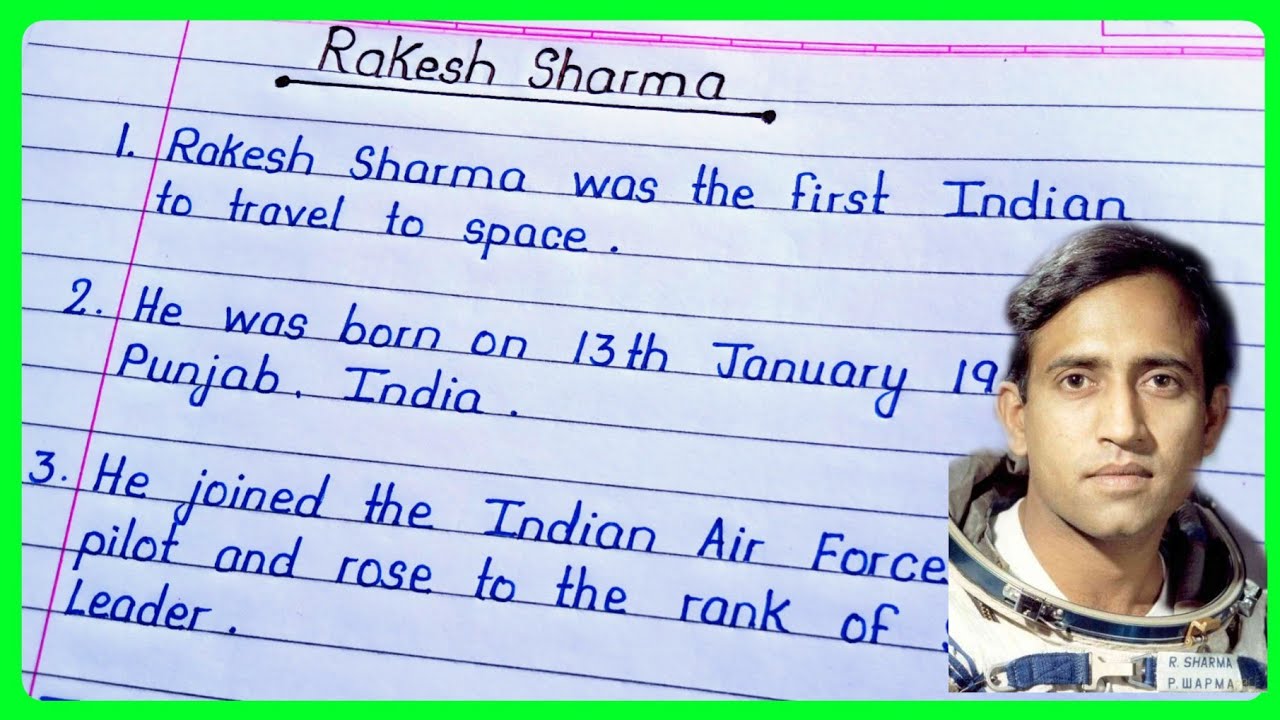 Rakesh Sharma
1. Rakesh Sharma was the first Indian
to travel to space.
2. He was born on 13th January 19
Punjab. India.
3. He joined the Indian Air Force
pilot and rose to the rank of
Leader.
R. SHARMA
Р. ШАРМА